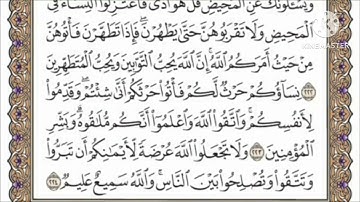 وَيَسْـَٔلُونَكَ عَنِ ٱلْمَحِيضِ قُلْ هُوَ أَذًى فَٱعْتَزِلُوا۟ ٱلنِّسَآءَ فِى
ٱلْمَحِيضِ وَلَا تَقْرَبُوهُنَّ حَتَّىٰ يَطْهُرْنَ فَإِذَا تَطَهَّرْنَ فَأْتُوهُنَّ
مِنْ حَيْثُ أَمَرَكُمُ ٱللَّهُ إِنَّ ٱللَّهَ يُحِبُّ ٱلتَّوَّٰبِينَ وَيُحِبُّ ٱلْمُتَطَهِّرِينَ
٢٢٢ نِسَآؤُكُمْ حَرْثٌ لَّكُمْ فَأْتُوا۟ حَرْثَكُمْ أَنَّىٰ شِئْتُمْ وَقَدِّمُوا۟
لِأَنفُسِكُمْ وَٱتَّقُوا۟ ٱللَّهَ وَٱعْلَمُوٓا۟ أَنَّكُم مُّلَٰقُوهُ وَبَشِّرِ
ٱلْمُؤْمِنِينَ ٢٢٣ وَلَا تَجْعَلُوا۟ ٱللَّهَ عُرْضَةً لِّأَيْمَٰنِكُمْ أَن تَبَرُّوا۟
وَتَتَّقُوا۟ وَتُصْلِحُوا۟ بَيْنَ ٱلنَّاسِ وَٱللَّهُ سَمِيعٌ عَلِيمٌ ٢٢٤
KINEMASTER